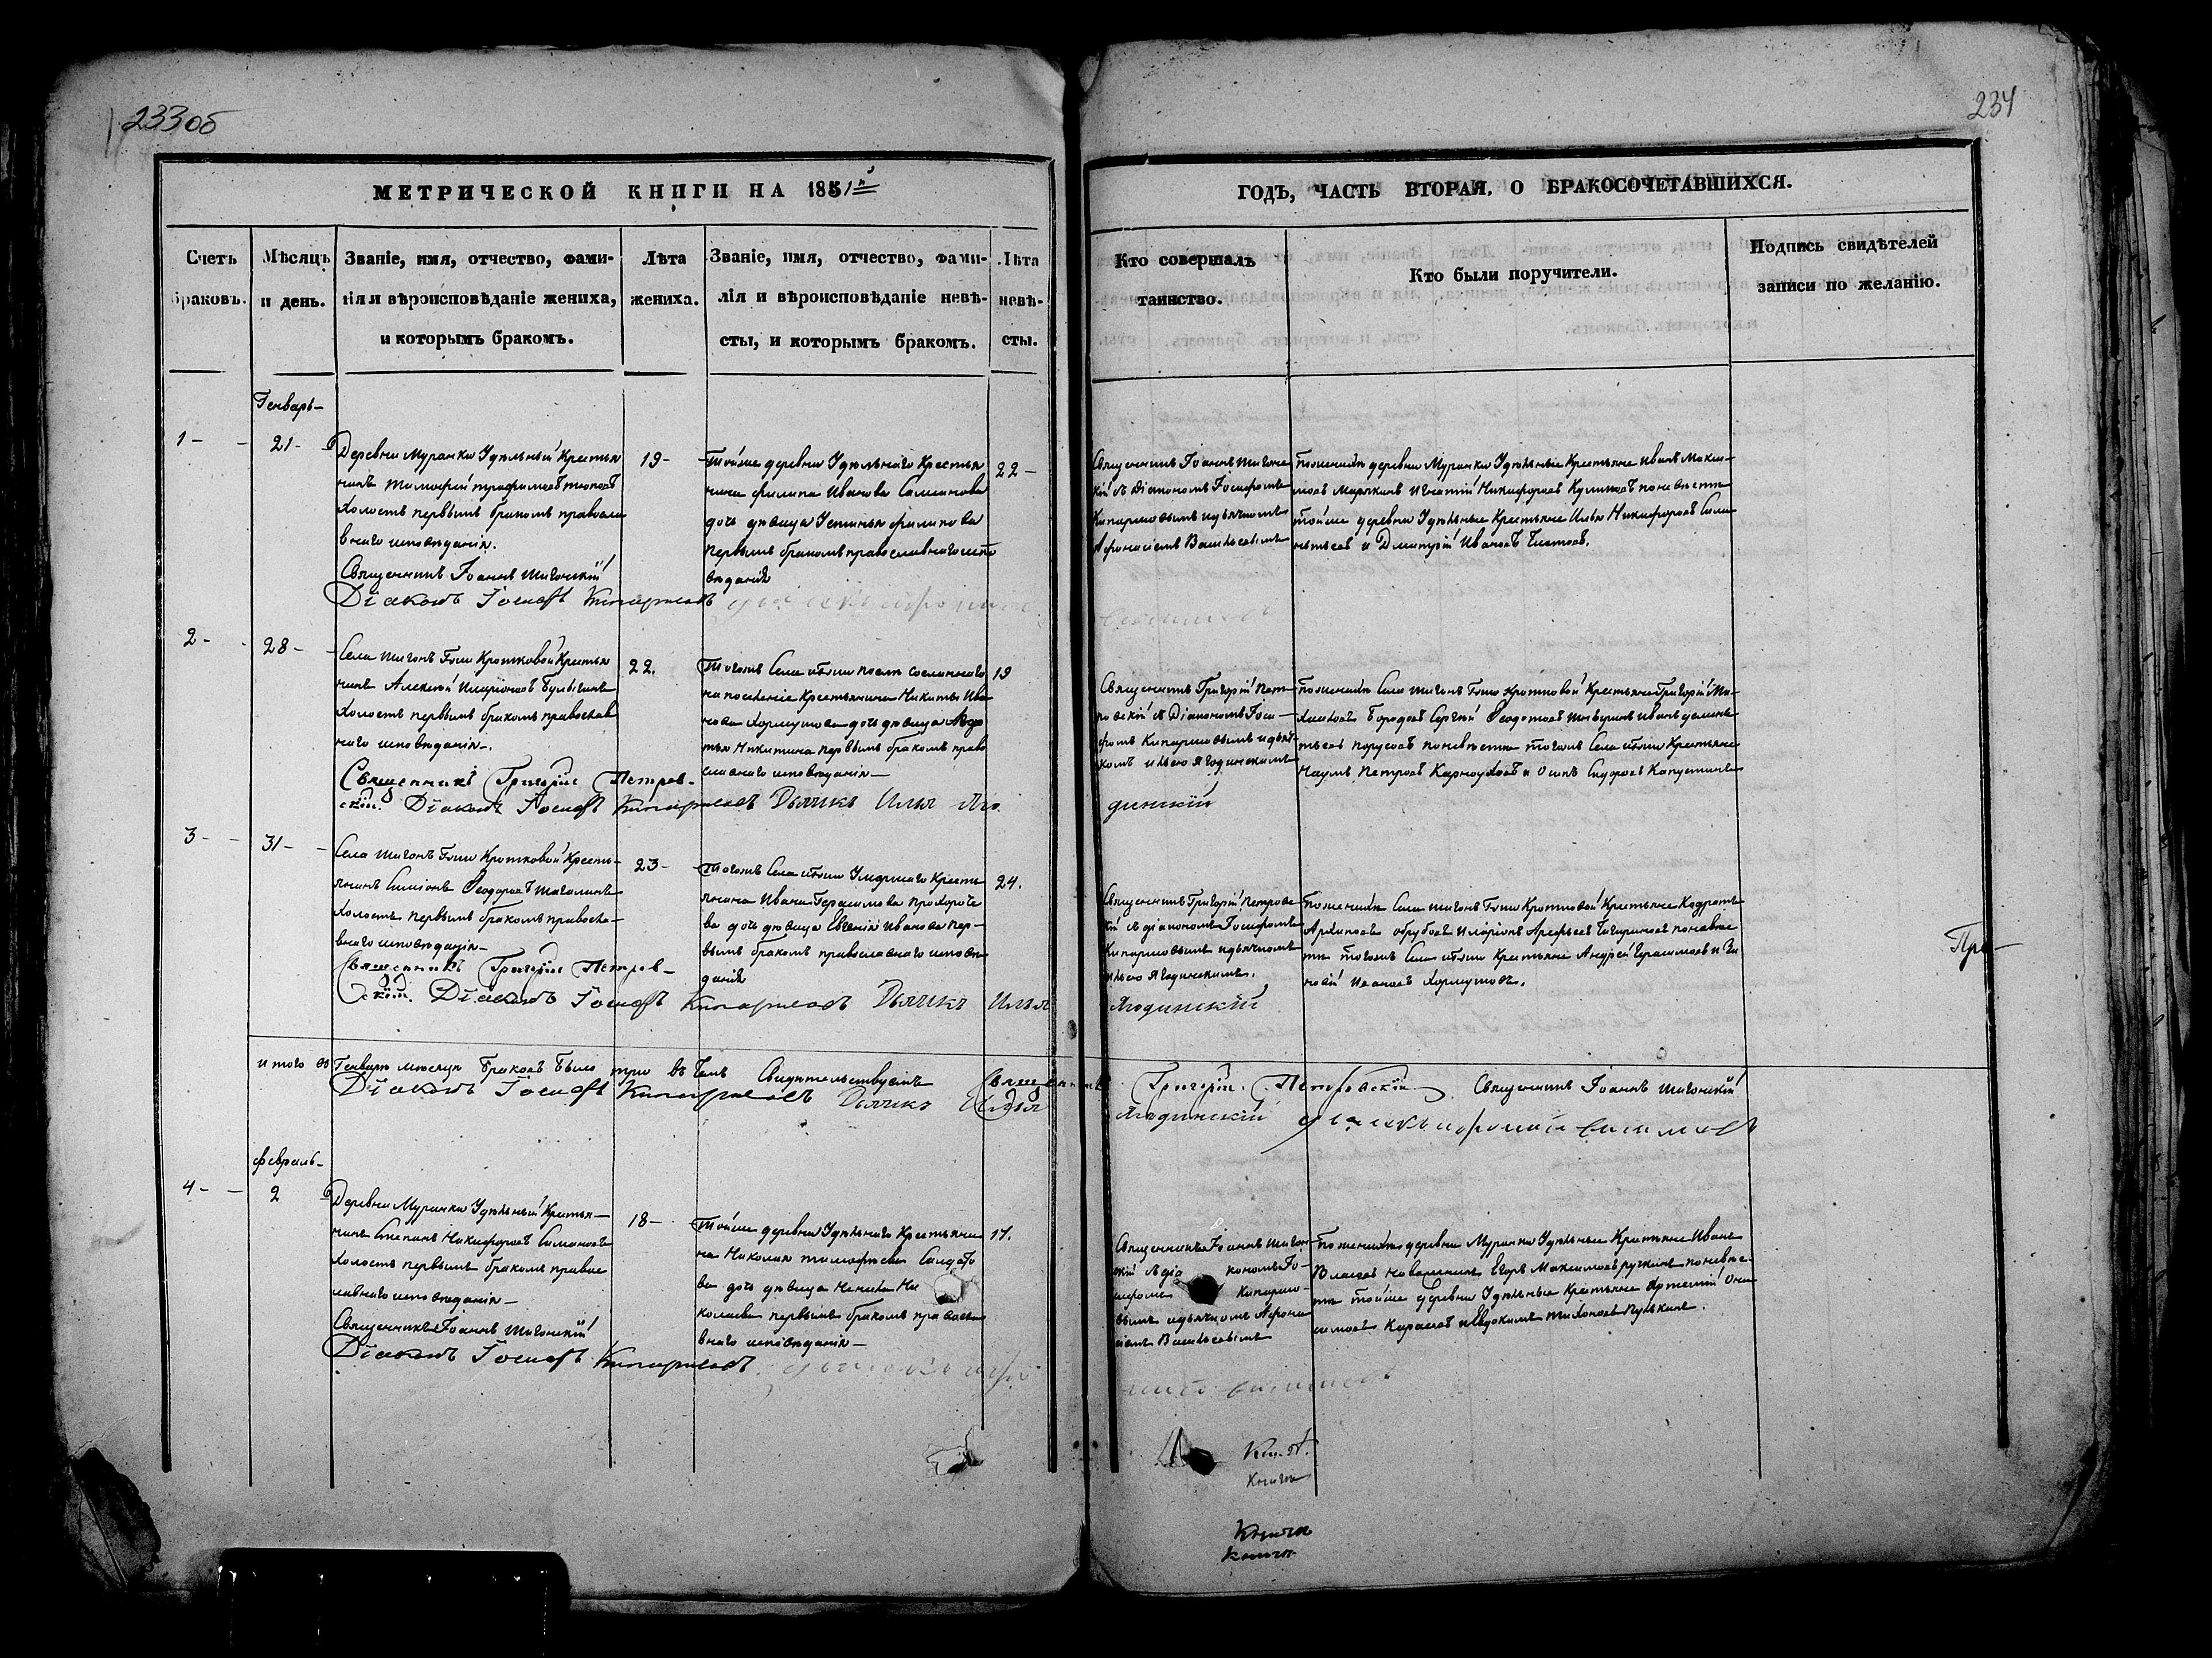 233об
234
МЕТРИЧЕСКОЙ КНИГИ НА 1851й
ГОДЪ, ЧАСТЬ ВТОРАЯ, О БРАКОСОЧЕТАВШИХСЯ.
Счетъ браковъ.
Мѣсяцъ и день.
Званіе, имя, отчество, фами-
лія и вѣроисповѣданіе жениха,
и которымъ бракомъ.
Лѣта
жениха.
Званіе, имя, отчество, фами-
лія и вѣроисповѣданіе невѣ-
сты, и которымъ бракомъ.
Лѣта
невѣ-
сты.
Кто совершалъ
таинство.
Кто были поручители.
Подпись свидѣтелей
записи по желанію.
Генварь
1
21
Деревни Муранки Удѣльный Крестья
нинъ Тимофей Трофимовъ
холостъ первымъ бракомъ правосла
внаго исповѣданія.
Священникъ Іоаннъ Шигонскій
Діаконъ Іосифъ Кипарисовъ
19
Тойже деревни Удѣльнаго Крестья
нина Филипа Иванова Симанова
дочь дѣвица Устинья Филипова
первымъ бракомъ православнаго испо
вѣданія
22
Священникъ Іоаннъ Шигонс
кій съ Діакономъ Іосифомъ
Кипарисовымъ и дьячкомъ
Афонасіемъ
по женихѣ деревни Муранки Удѣльные Крестьяне Иванъ Макси
мовъ Игнатій Никифоровъ Куликовъ по невѣстѣ
тойже деревни Удѣльные Крестьяне Илья Никифоровъ
и Дмитрій Ивановъ
2
28
Села Шигонъ Гжи Кротковой Крестья
нинъ Алексей Иларионовъ Булыгинъ
холостъ первымъ бракомъ православ
наго исповѣданія.
Священникъ Григорій Петров-
скій. Діаконъ Іосифъ Кипарисовъ Дьячикъ Илья Яго
динскій
22.
Тогожъ Села
на поселеніе Крестьянина Никиты Ива
нова Хормушова дочь дѣвица Авдо
тья Никитина первымъ бракомъ право
славнаго исповѣданія
19
Священникъ Григорій Пет
ровскій съ Діакономъ Іоси
фомъ Кипарисовымъ и дьяч
комъ Ильею Ягодинскимъ
по женихѣ Села Шигонъ Гжи Кротковой Крестьяне Григорій Ми
Бородовъ Сергей Феодотовъ Иванъ
по невѣстѣ тогожъ Села Крестьяне
Наумъ Петровъ Карноуховъ и Осипъ Сидоровъ Капустинъ
3
31
Села Шигонъ Гжи Кротковой Кресть
янинъ Симіонъ Феодоровъ Шагалинъ
холостъ первымъ бракомъ правосла
внаго исповѣданія
Священникъ Григорій Петров-
скій. Діаконъ Іосифъ Кипарисовъ Дьячикъ Илья
Ягодинскій
23
Тогожъ Села Умершаго Кресть
янина Ивана Герасимова Прохоро
ва дочь дѣвица Евгенія Иванова пер
вымъ бракомъ православнаго исповѣ
данія
24.
Священникъ Григорій Петровс
кій съ діакономъ Іосифомъ
Кипарисовымъ и дьячкомъ
Ильею Ягодинскимъ.
по женихѣ Села Шигонъ Гжи Кротковой Крестьяне Кодратъ
Архиповъ Обрубовъ Иларіонъ Арефьевъ Чигириновъ по невѣс
тѣ тогожъ Села Крестьяне Андрей Герасимовъ и Зи
новій Ивановъ Хормушовъ.
При
Итого въ Генварѣ мѣсяцѣ браковъ было три въ чемъ Свидетельствуемъ Священникъ Григорій Петровскій. Священникъ Іоаннъ Шигонскій
Діаконъ Іосифъ Кипарисовъ Дьячикъ Илья Ягодинскій
Февраль
4
2
Деревни Муранки Удѣльный Крестья
нинъ Степанъ Никифоровъ Симановъ
холостъ первымъ бракомъ правос
лавнаго исповѣданія
Священникъ Іоаннъ Шигонскій
Діаконъ Іосифъ Кипарисовъ
18
Тойже деревни Удѣльнаго Крестьяни
на Николая Тимофѣева
ва дочь дѣвица Ненила Ни
колаева первымъ бракомъ правосла
внаго исповѣданія
17.
Священникъ Іоаннъ Шигон
скій съ діакономъ Іо
сифомъ Кипарисо
вымъ и дьячкомъ Афона
сіемъ
по женихѣ деревни Муранки Удѣльные Крестьяне Иванъ
Власовъ Егоръ Максимовъ по невѣс
тѣ тойже деревни Удѣльные Крестьяне Артемій Они
симовъ Карасевъ и Евдокимъ Тихоновъ
Книга
Книга
Книга